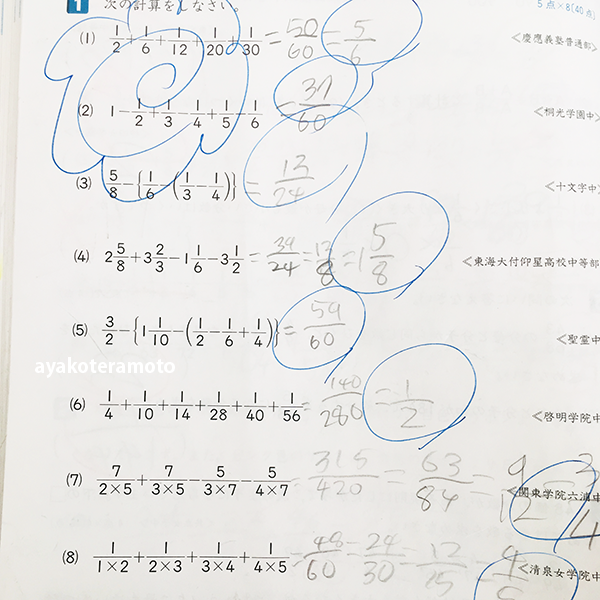 1 次の計算をしなさい。 5点×8(40点)
(1) 1/2+1/6+1/12+1/20+1/30 =50/60=5/6 <慶應義塾普通部>
(2) 1-1/2+1/3-1/4+1/5-1/6 =37/60 <桐光学園中>
(3) 5/8-{1/6-(1/3-1/4)} =13/24 <十文字中>
(4) 2 5/8+3 2/3-1 1/6-3 1/2 =39/24=13/8=1 5/8 <東海大付仰星高校中等部
(5) 3/2-{1 1/10-(1/2-1/6+1/4)} =59/60 <聖霊中
ayakoteramoto
(6) 1/4+1/10+1/14+1/28+1/40+1/56 =140/280=1/2 <啓明学院中
(7) 7/2×5+7/3×5-5/3×7-5/4×7 =315/420=63/84=9/12=3/4 <関東学院六浦中
(8) 1/1×2+1/2×3+1/3×4+1/4×5 =48/60=24/30=12/15=4/5 <清泉女学院中